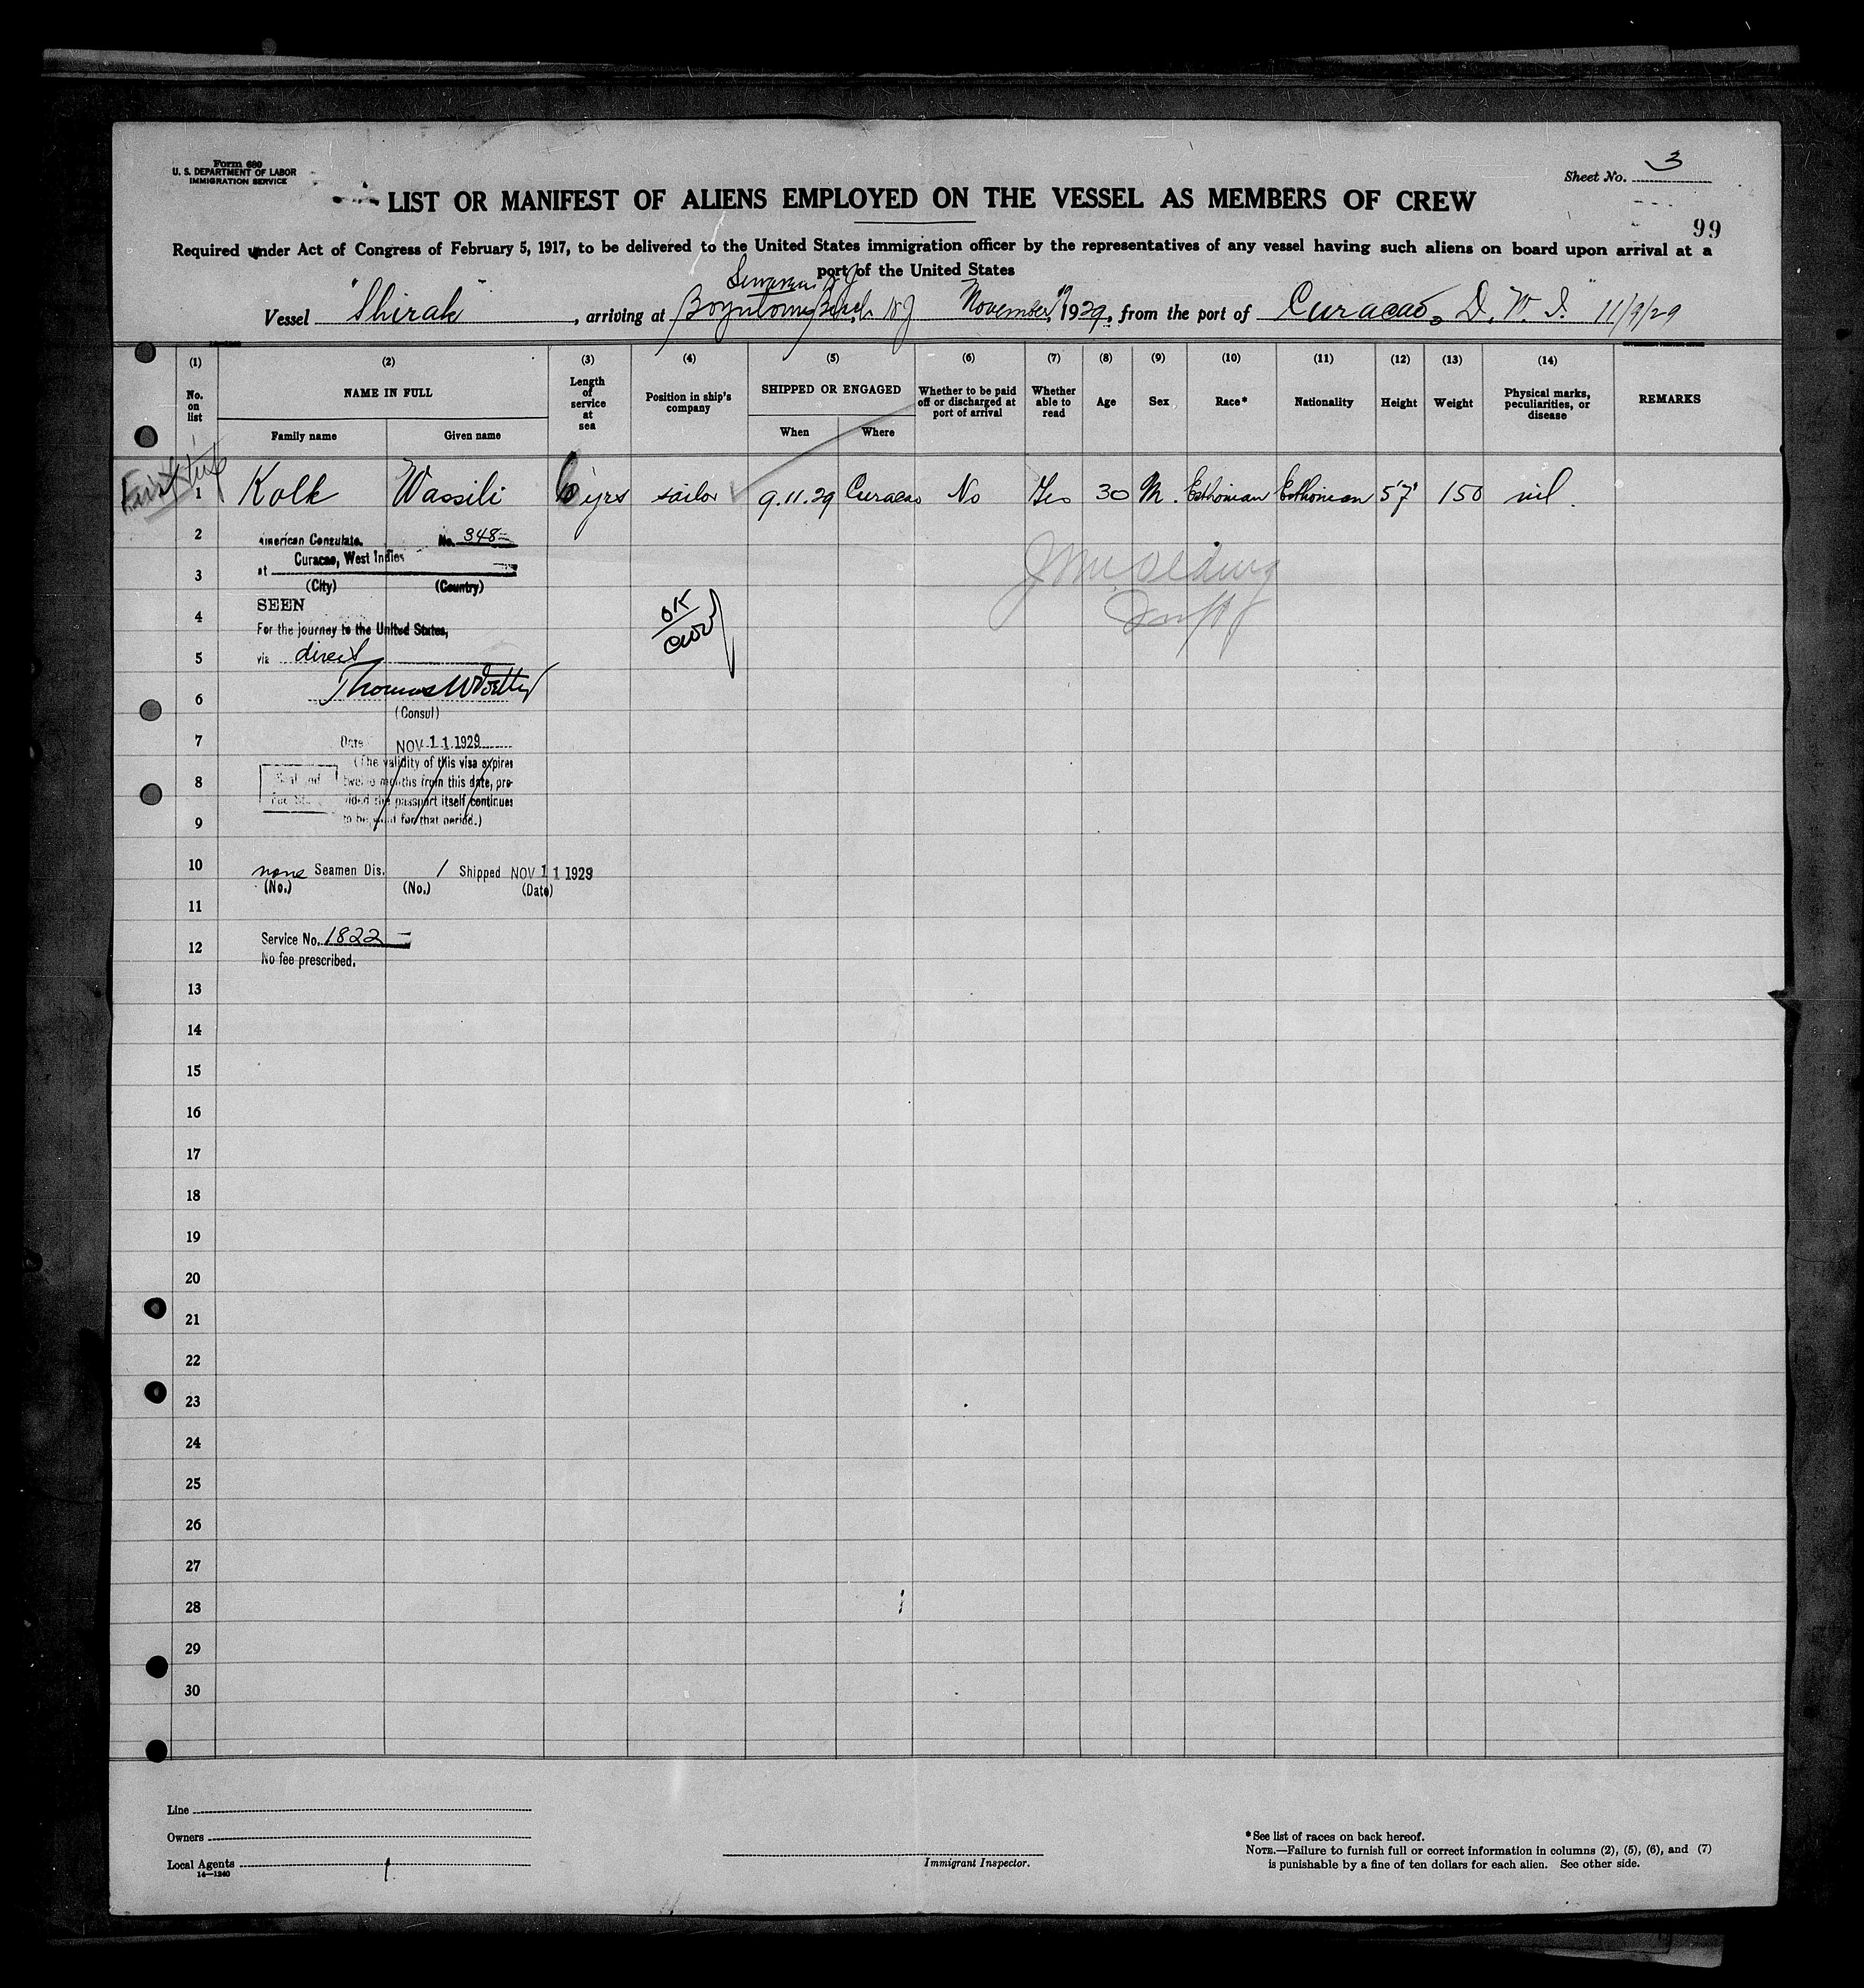 Form 680
U. S. DEPARTMENT OF LABOR
IMMIGRATION SERVICE
Sheet No. 3
LIST OR MANIFEST OF ALIENS EMPLOYED ON THE VESSEL AS MEMBERS OF CREW
99
Required under Act of Congress of February 5, 1917, to be delivered to the United States immigration officer by the representatives of any vessel having such aliens on board upon arrival at a
port of the United States
Vessel "Shirak", arriving at Boynton Beach NJ November, 1929, from the port of Curacao, D. W. I. 11/9/29
(1) (2) (3) (4) (5) (6) (7) (8) (9) (10) (11) (12) (13) (14)
No. on list
NAME IN FULL
Family name
Given name
Length of service at sea
Position in ship's company
SHIPPED OR ENGAGED
When
Where
Whether to be paid off or discharged at port of arrival
Whether able to read
Age
Sex
Race*
Nationality
Height
Weight
Physical marks, peculiarities, or disease
REMARKS
First trip
1 Kolk Wassili 6 yrs sailor 9.11.29 Curacao No Yes 30 M. Esthonian Esthonian 5'7" 150 nil.
2
American Consulate. No. 348
3
at Curacao, West Indies
(City) (Country)
SEEN
4
For the journey to the United States,
OK
5
via direct
6
(Consul)
7
Date NOV 11 1929
(The validity of this visa expires
8
twelve months from this date, pro-
vided the passport itself continues
9
to be valid for that period.)
10
none Seamen Dis. 1 Shipped NOV 11 1929
(No.) (No.) (Date)
11
12
Service No. 1822
No fee prescribed.
13
14
15
16
17
18
19
20
21
22
23
24
25
26
27
28
29
30
Line
Owners
Local Agents
14—1240
Immigrant Inspector.
*See list of races on back hereof.
NOTE.—Failure to furnish full or correct information in columns (2), (5), (6), and (7)
is punishable by a fine of ten dollars for each alien. See other side.